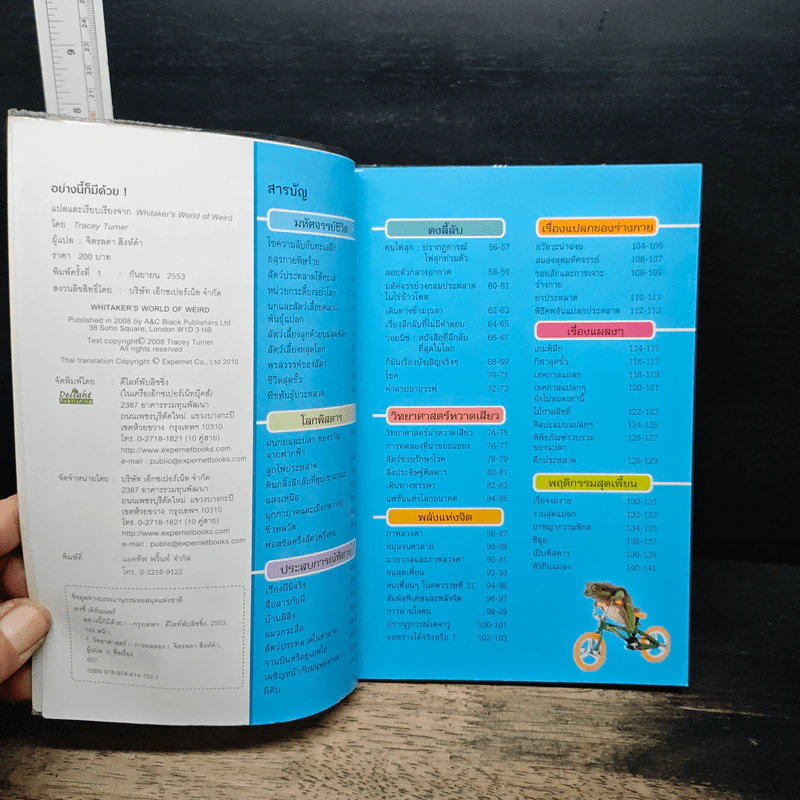 อย่างนี้ก็มีด้วย !
แปลและเรียบเรียงจาก Whitaker's World of Weird
โดย Tracey Turner
ผู้แปล : จิตรลดา สิงห์คำ
ราคา 200 บาท
พิมพ์ครั้งที่ 1 : กันยายน 2553
สงวนลิขสิทธิ์โดย : บริษัท เอ็กซเปอร์เน็ท จำกัด
WHITAKER'S WORLD OF WEIRD
Published in 2008 by A&C Black Publishers Ltd
38 Soho Square, London W1D 3 HB
Text copyright© 2008 Tracey Turner
All rights reserved
Thai translation Copyright © Expernet Co., Ltd 2010
จัดพิมพ์โดย : ดีไลท์พับลิชชิ่ง
(ในเครือเอ็กซเปอร์เน็ทบุ๊คส์)
2387 อาคารรวมทุนพัฒนา
ถนนเพชรบุรีตัดใหม่ แขวงบางกะปิ
เขตห้วยขวาง กรุงเทพฯ 10310
โทร. 0-2718-1821 (10 คู่สาย)
http://www.expernetbooks.com
e-mail : public@expernetbooks.com
Delight
จัดจำหน่ายโดย : บริษัท เอ็กซเปอร์เน็ท จำกัด
2387 อาคารรวมทุนพัฒนา
ถนนเพชรบุรีตัดใหม่ แขวงบางกะปิ
เขตห้วยขวาง กรุงเทพฯ 10310
โทร. 0-2718-1821 (10 คู่สาย)
http://www.expernetbooks.com
e-mail : public@expernetbooks.com
พิมพ์ที่ แอคทีฟ พริ้นท์ จำกัด
โทร. 0-2216-9122
ข้อมูลทางบรรณานุกรมหอสมุดแห่งชาติ
เทรซี่ เทิร์นเนอร์
อย่างนี้ก็มีด้วย ! -- กรุงเทพฯ : ดีไลท์พับลิชชิ่ง, 2553.
142 หน้า.
1. วิทยาศาสตร์ -- การทดลอง I. จิตรลดา สิงห์คำ,
ผู้แปล. II. ชื่อเรื่อง
507.
ISBN 978-974-414-152-1
สารบัญ
มหัศจรรย์ชีวิต
ไขความลับก้นทะเลลึก
อสุรกายพิษร้าย
สัตว์ประหลาดใต้ทะเล
หน่วยกระดึ๊บเขย่าโลก
นกและสัตว์เลื้อยคลาน
พันธุ์แปลก
สัตว์เลี้ยงลูกด้วยนมสุดพิลึก
สัตว์เลี้ยงหลุดโลก
พรสวรรค์ของสัตว์
ชีวิตสุดขั้ว
พืชพันธุ์ประหลาด
โลกพิสดาร
ฝนกบและปลา ของขวัญ
จากฟากฟ้า
ลูกไฟประหลาด
แสงเหนือ
ซีวพลวัต
ฟอสซิลครึ่งสัตว์ครึ่งคน
ประสบการณ์พิศวง
เรื่องผีมีจริง
สื่อสารกับผี
บ้านผีสิง
แมวกระสือ
สัตว์ประหลาดในตำนาน
จานบินหรือยูเอฟโอ
ผีดิบ
ดงลี้ลับ
คนไฟลุก : ปรากฏการณ์ 56-57
ไฟลุกท่วมตัว
ลอยตัวกลางอากาศ 58-59
มหัศจรรย์วงกลมประหลาด 60-61
ในไร่ข้าวโพด
เดินทางข้ามเวลา 62-63
เรื่องลึกลับที่ไม่มีคำตอบ 64-65
วอยนิช : หนังสือที่ลึกลับ 66-67
ที่สุดในโลก
ก็มันเรื่องบังเอิญจริงๆ 68-69
โชค 70-71
คำสาปอาถรรพ์ 72-73
วิทยาศาสตร์หวาดเสียว
วิทยาศาสตร์น่าหวาดเสียว 74-75
การทดลองที่น่าขยะแขยง 76-77
สัตว์ช่วยรักษาโรค 78-79
สิ่งประดิษฐ์พิสดาร 80-81
เดินทางหรรษา 82-83
แฟชั่นแห่งโลกอนาคต 84-85
พลังแห่งจิต
ภาพลวงตา 86-87
หมุนจนตาลาย 88-89
มายากลและภาพลวงตา 90-91
คนสุดเพี้ยน 92-93
คนเพี้ยนๆ ในศตวรรษที่ 21 94-95
สัมผัสพิเศษและพลังจิต 96-97
การอ่านใจคน 98-99
ปรากฏการณ์เดจาวู 100-101
ถอดร่างได้จริงหรือ ? 102-103
เรื่องแปลกของร่างกาย
อวัยวะน่าฉงน 104-105
สมองสุดมหัศจรรย์ 106-107
รอยสักและการเจาะ 108-109
ร่างกาย
ยาประหลาด 110-111
พิธีศพอันแปลกประหลาด 112-113
เรื่องแผลงๆ
เกมพิลึก 114-115
กีฬาสุดขั้ว 116-117
เทศกาลแปลก 118-119
เทศกาลแปลกๆ 120-121
ยังไม่หมดเท่านี้
ไม้กายสิทธิ์ 122-123
ศิลปะแบบแปลกๆ 124-125
พิพิธภัณฑ์รวบรวม 126-127
ของแปลก
ตึกประหลาด 128-129
พฤติกรรมสุดเพี้ยน
เรื่องงมงาย 130-131
งานสุดแปลก 132-133
อาชญากรรมพิกล 134-135
ขี้ฉุย 136-137
เป็บพิสดาร 138-139
หัวกินแมลง 140-141